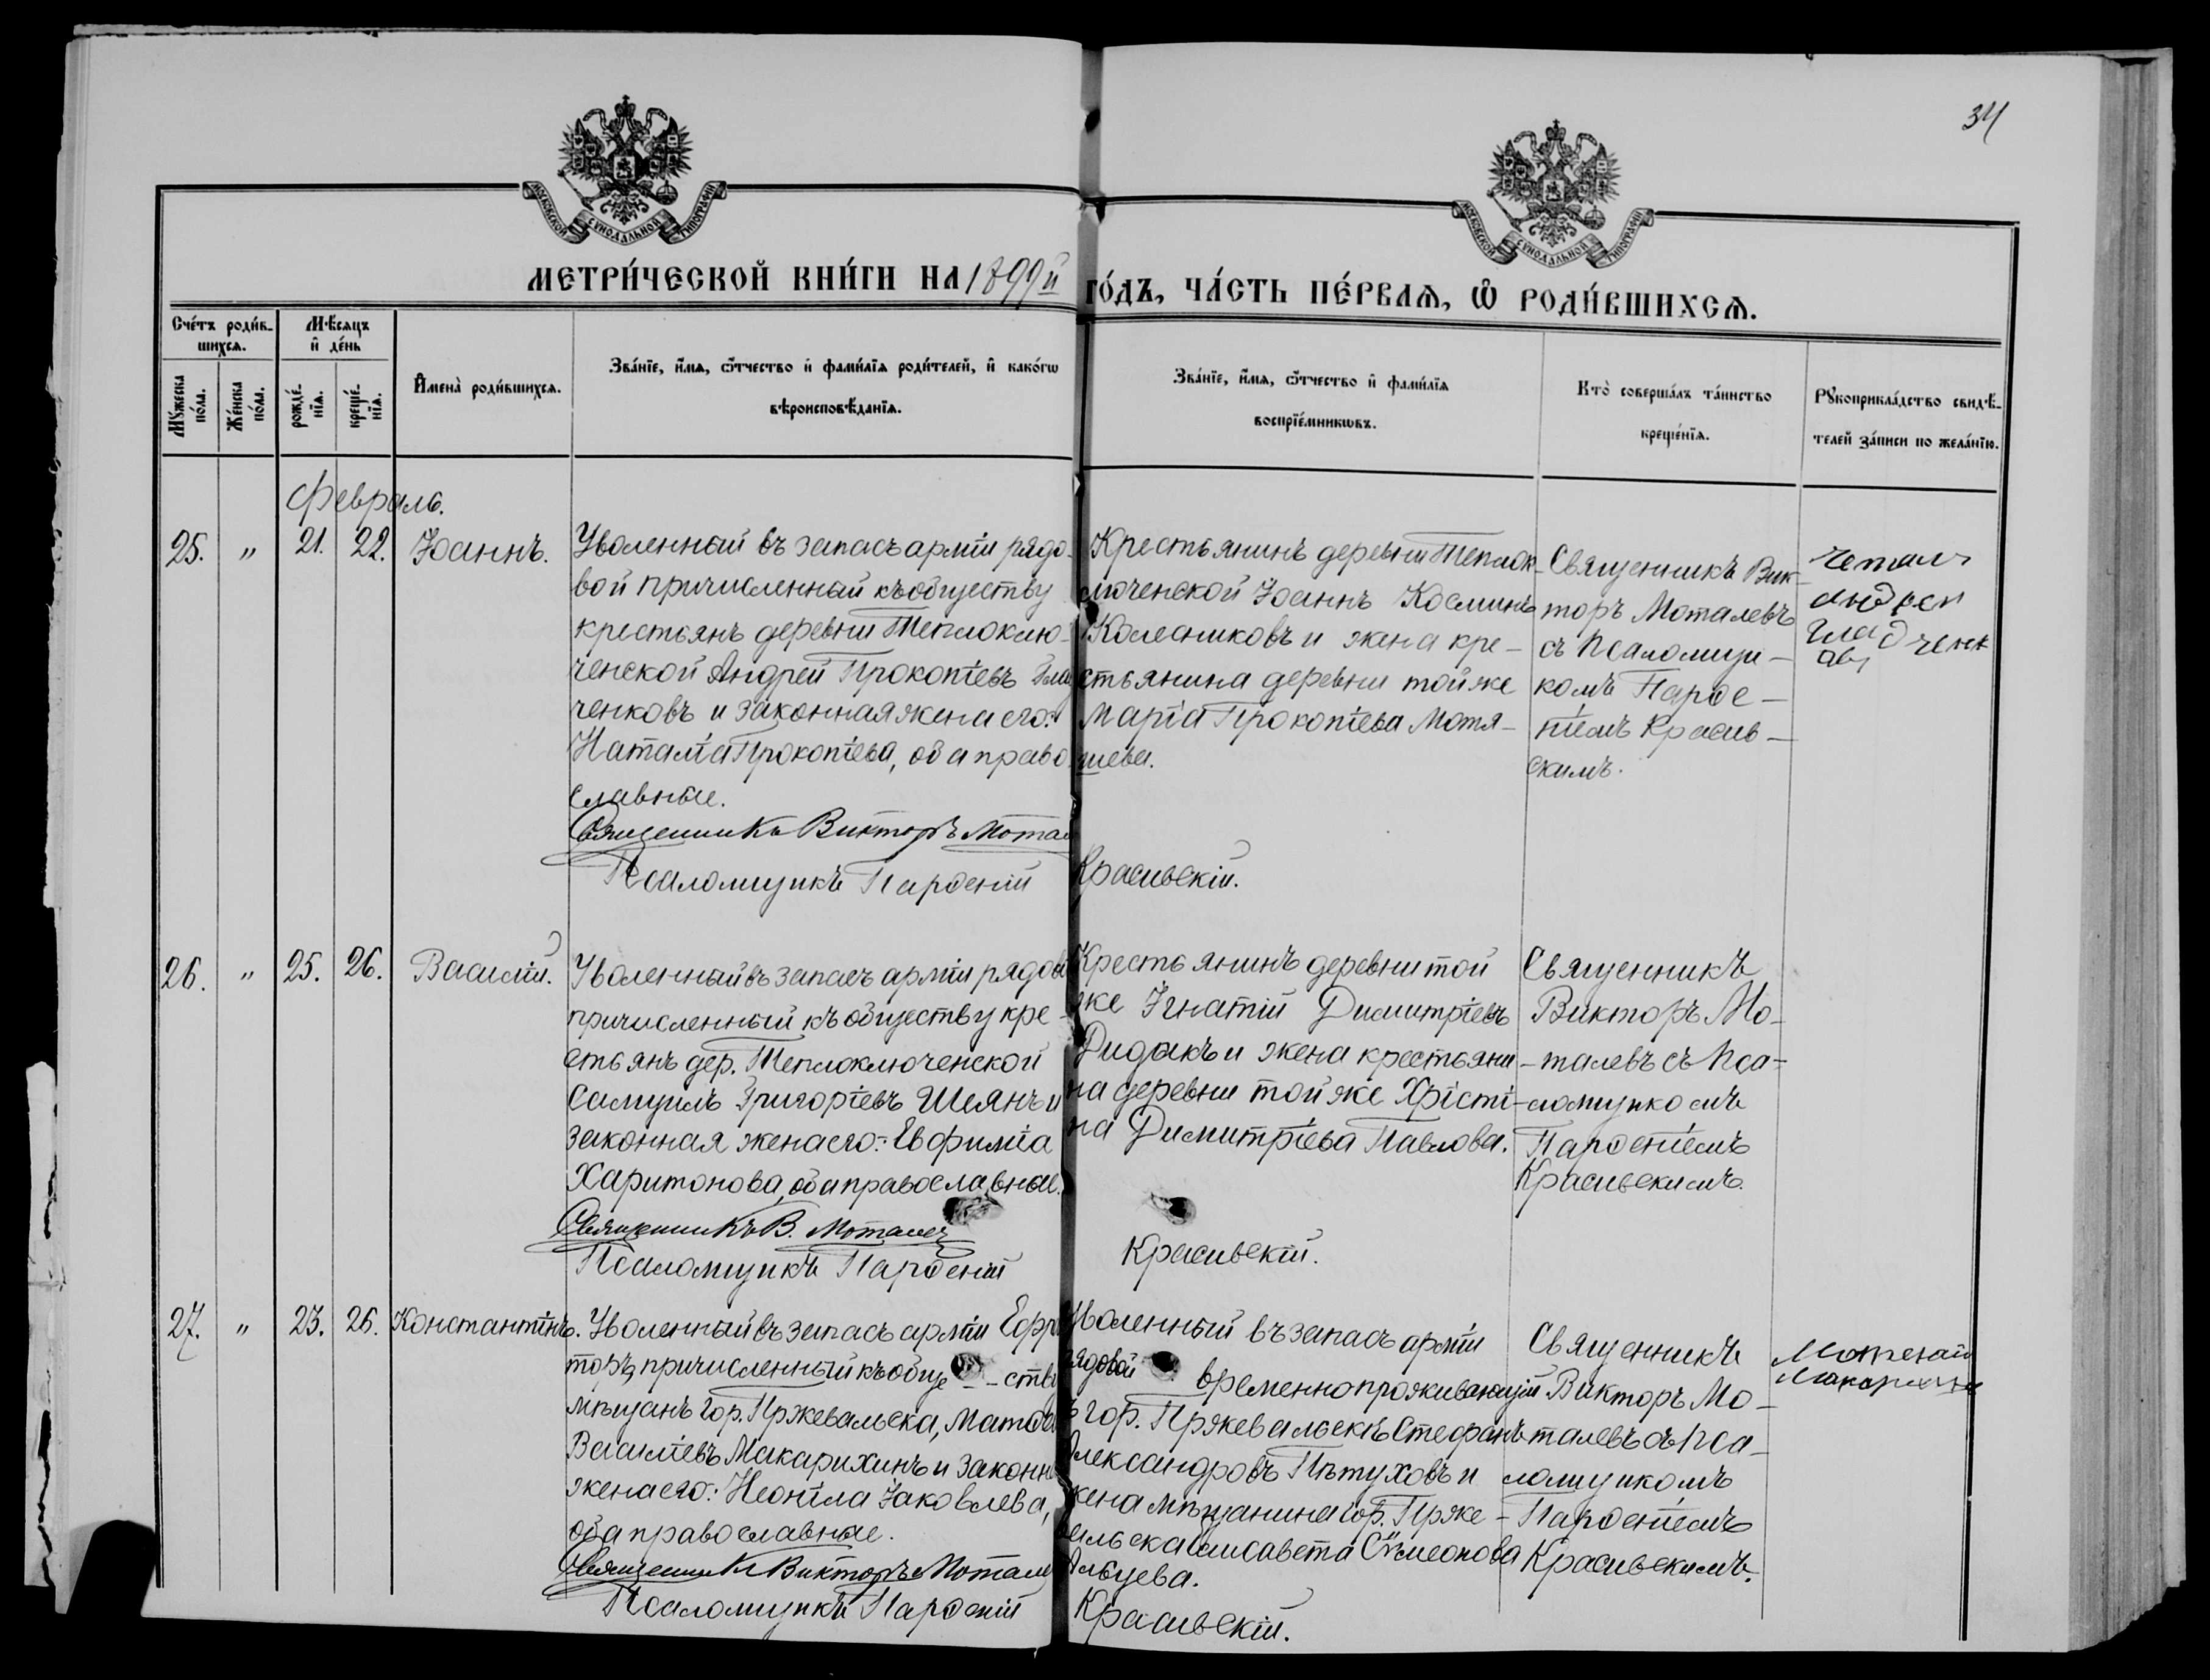 34
МОСКОВСКОЙ СУНОДАЛЬНОЙ ТИПОГРАФІИ
МОСКОВСКОЙ СУНОДАЛЬНОЙ ТИПОГРАФІИ
МЕТРИ́ЧЕСКОЙ КНИ́ГИ НА 1899й
ГО́ДЪ, ЧА́СТЬ ПЕ́РВАѦ, Ѡ҆ РОДИ́ВШИХСѦ.
Сче́тъ роди́в-
шихсѧ.
Мꙋ́жеска
по́ла.
Же́нска
по́ла.
Мѣ́сѧцъ
и҆ де́нь
рожде́-
нїѧ.
креще́-
нїѧ.
И҆мена̀ роди́вшихсѧ.
Зва́нїе, и҆́мѧ, ѻ҆́тчество и҆ фами́лїѧ роди́телей, и҆ како́гѡ
вѣроисповѣ́данїѧ.
Зва́нїе, и҆́мѧ, ѻ҆́тчество и҆ фами́лїѧ
воспрїе́мникѡвъ.
Кто̀ соверша́лъ та́инство
креще́нїѧ.
Рꙋкоприкла́дство свидѣ́-
телей за́писи по жела́нїю.
Февраль.
25.
"
21.
22.
Іоаннъ.
Уволенный въ запасъ арміи рядо-
вой причисленный къ обществу
крестьянъ деревни Теплоклю-
ченской Андрей Прокопіевъ Гла
ченковъ и законная жена его:
Наталіа Прокопіева, оба право
славные.
Священникъ Викторъ Мотал
Псаломщикъ Парѳеній
Крестьянинъ деревни Теплок-
люченской Іоаннъ Косминъ
Колесниковъ и жена кре-
стьянина деревни той же
Маріа Прокопіева Мотя-
шева.
Красивскій.
Священникъ Вик-
торъ Моталевъ
съ Псаломщи-
комъ Парѳе-
ніемъ Красив-
скимъ.
читалъ
андреи
26.
"
25.
26.
Василій.
Уволенный въ запасъ арміи рядово
причисленный къ обществу кре-
стьянъ дер. Теплоключенской
Самуилъ Григоріевъ Шеянъ и
законная жена его: Евфиміа
Харитонова, оба православные.
Священникъ В. Моталевъ
Псаломщикъ Парѳеній
Крестьянинъ деревни той
же Ігнатій Димитріевъ
Дидакъ и жена крестьяни-
на деревни той же Хрісті-
на Димитріева Павлова.
Красивскій.
Священникъ
Викторъ Мо-
талевъ съ Пса-
ломщикомъ
Парѳеніемъ
Красивскимъ.
27.
"
23.
26.
Константінъ.
Уволенный въ запасъ арміи Ефре
торъ, причисленный къ обще - - ству
мѣщанъ гор. Пржевальска, Матѳе
Василіевъ Макарихинъ и законн
жена его: Неоніла Іаковлева,
оба православные.
Священникъ Викторъ Моталев
Псаломщикъ Парѳеній
Уволенный въ запасъ арміи
рядовой временно проживающій
въ гор. Пржевальскѣ Стефанъ
Александровъ Пѣтуховъ и
жена мѣщанина гор. Прже-
вальска Елисавета Сѵмеонова
Красивскій.
Священникъ
Викторъ Мо-
талевъ съ Пса-
ломщикомъ
Парѳеніемъ
Красивскимъ.